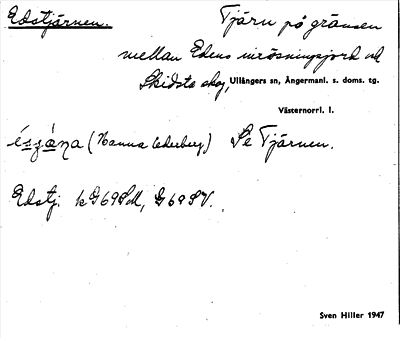 Edstjärnen. Tjärn på gränsen
mellan Edens inrösningsjord och
Skidsta skog, Ullångers sn, Ångermanl. s. doms. tg.
Västernorrl. l.
(Hanna Cederberg) Se Tjärnen.
Edstj. k G69SM, G69SV.
Sven Hiller 1947